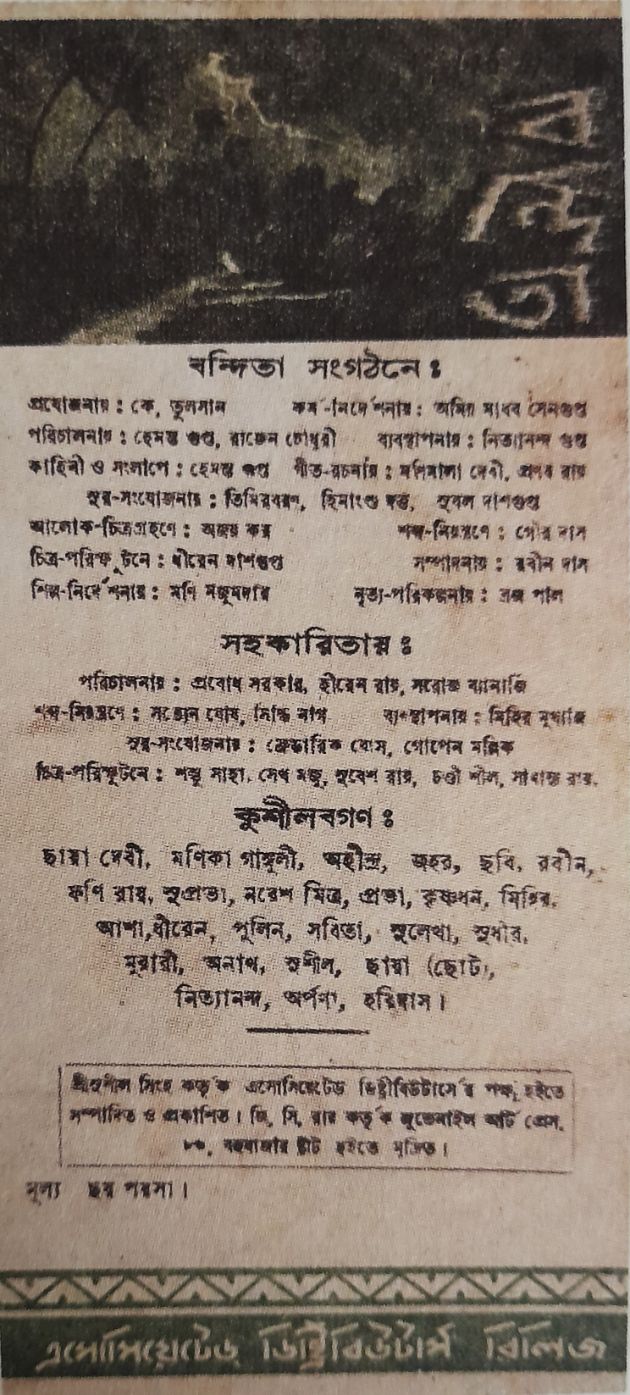 বন্দিতা সংগঠনে :
প্রযোজনায় : কে, তুলসান কর্ম-নির্দেশনায় : অমিয় মাধব সেনগুপ্ত
পরিচালনায় : হেমন্ত গুপ্ত, রাজেন চৌধুরী ব্যবস্থাপনায় : নিত্যানন্দ গুপ্ত
কাহিনী ও সংলাপে : হেমন্ত গুপ্ত গীত-রচনায় : মণিমালা দেবী, প্রণব রায়
সুর-সংযোজনায় : তিমিরবরণ, হিমাংশু দত্ত, সুবল দাশগুপ্ত
আলোক-চিত্রগ্রহণে : অজয় কর শব্দ-নিয়ন্ত্রণে : গৌর দাস
চিত্র-পরিস্ফুটনে : ধীরেন দাশগুপ্ত সম্পাদনায় : রবীন দাস
শিল্প-নির্দেশনায় : মণি মজুমদার নৃত্য-পরিকল্পনায় : ব্রজ পাল
সহকারিতায় :
পরিচালনায় : প্রবোধ সরকার, হীরেন রায়, সরোজ ব্যানার্জি
শব্দ-নিয়ন্ত্রণে : সত্যেন ঘোষ, সিদ্ধি নাগ ব্যবস্থাপনায় : মিহির মুখার্জি
সুর-সংযোজনায় : ফ্রেডারিক ঘোস, গোপেন মল্লিক
চিত্র-পরিস্ফুটনে : শম্ভু সাহা, সেখ মজু, সুবেশ রায়, চণ্ডী শীল, রায়.
কুশীলবগণ :
ছায়া দেবী, মণিকা গাঙ্গুলী, অহীন্দ্র, জহর, ছবি, রবীন,
ফণি রায়, সুপ্রভা, নরেশ মিত্র, প্রভা, কৃষ্ণধন, মিহির,
আশা, ধীরেন, পুলিন, সবিতা, সুলেখা, সুধীর,
মুরারী, অনাথ, সুশীল, ছায়া (ছোট),
নিত্যানন্দ, অর্পণা, হরিদাস।
শ্রীসুশীল সিংহ কর্তৃক এসোসিয়েটেড ডিষ্ট্রীবিউটার্সের পক্ষ হইতে
সম্পাদিত ও প্রকাশিত। জি, সি, রায় কর্তৃক জুভেনাইল আর্ট প্রেস,
৮৬, বহুবাজার ষ্ট্রীট হইতে মুদ্রিত।
মূল্য ছয় পয়সা।
এসোসিয়েটেড ডিষ্ট্রিবিউটার্স রিলিজ